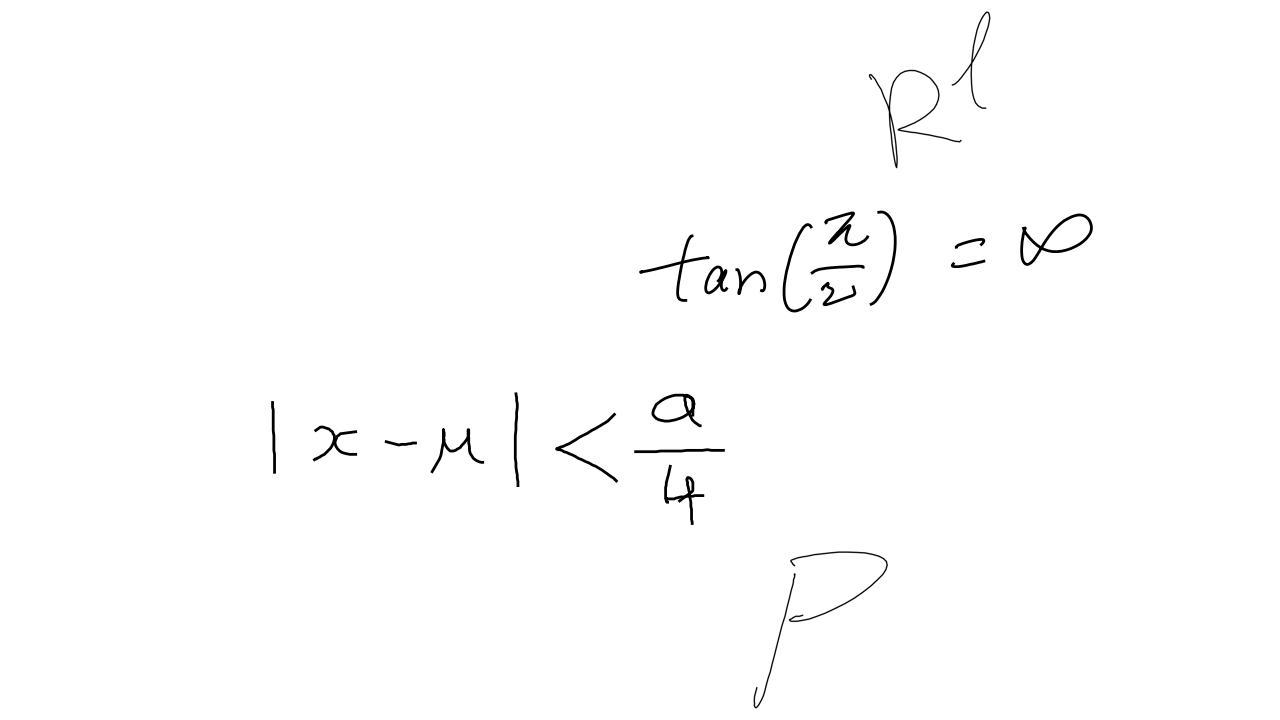 R^l
tan(π/2) = ∞
|x - μ| < a/4
P